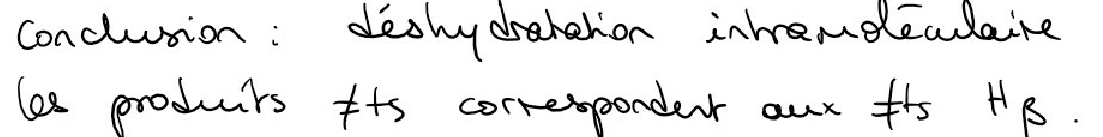 Conclusion : déshydratation intramoléculaire
les produits ≠ts correspondent aux ≠ts Hβ.